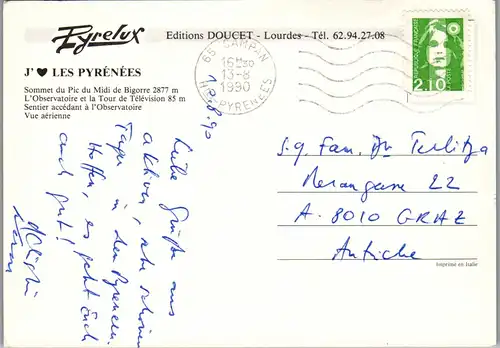 Pyrelux
Editions DOUCET - Lourdes - Tél. 62.94.27.08
J'♥ LES PYRÉNÉES
Sommet du Pic du Midi de Bigorre 2877 m
L'Observatoire et la Tour de Télévision 85 m
Sentier accédant à l'Observatoire
Vue aérienne
65 CAMPAN
13-8
1990
HTES PYRENEES
REPUBLIQUE FRANÇAISE
2,10
12.8.90
Liebe Grüße aus
aktiven, sehr schönen
Tagen in den Pyrenäen.
Hoffen, es geht Euch
auch gut!
S.g. Fam. Dr. Terlitza
Merangasse 22
A-8010 GRAZ
Autriche
Imprimé en Italie